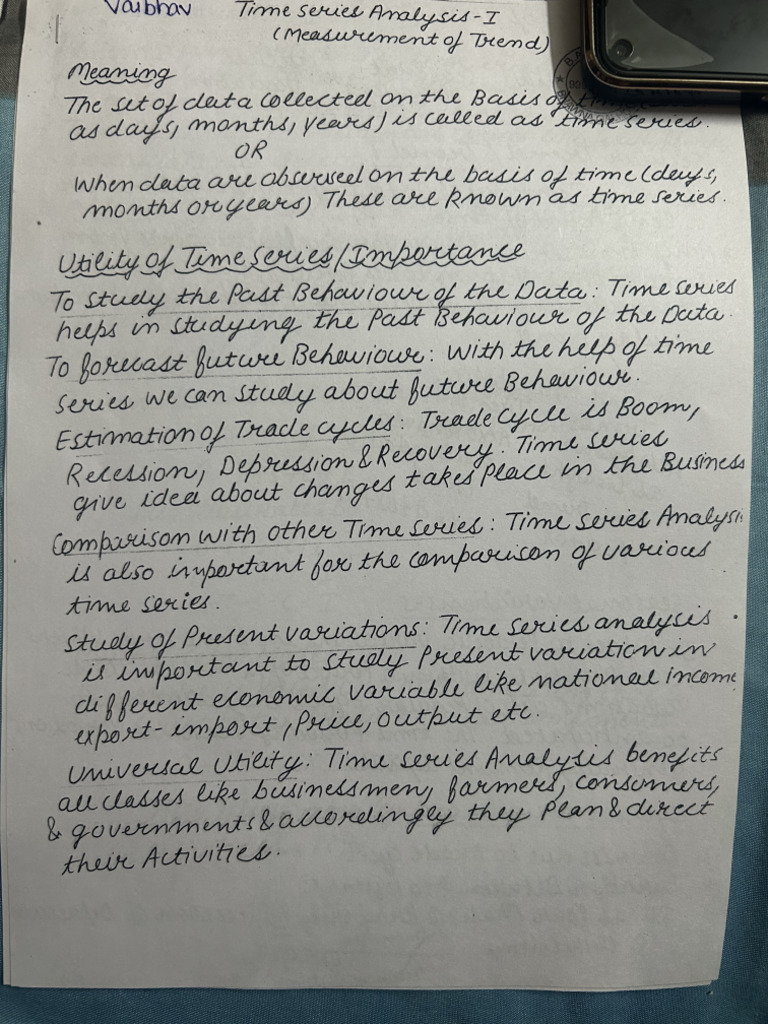 Vaibhav
Time series Analysis-I
(Measurement of Trend)
Meaning
The set of data collected on the Basis of time
as days, months, years) is called as time series.
OR
When data are obsersed on the basis of time (days,
months or years) These are known as time series.
Utility of Time Series/Importance
To study the Past Behaviour of the Data: Time series
helps in studying the Past Behaviour of the Data.
To forecast future Behaviour: With the help of time
series we can study about future Behaviour.
Estimation of Trade cycles: Trade cycle is Boom,
Recession, Depression & Recovery. Time series
give idea about changes takes place in the Business
Comparison with other Time series: Time series Analysi
is also important for the comparison of various
time series.
Study of Present variations: Time series analysis
is important to study Present variation in
different economic variable like national income
export-import, Price, output etc.
Universal Utility: Time series Analysis benefits
all classes like businessmen, farmers, consumers,
& governments & accordingly they Plan & direct
their Activities.